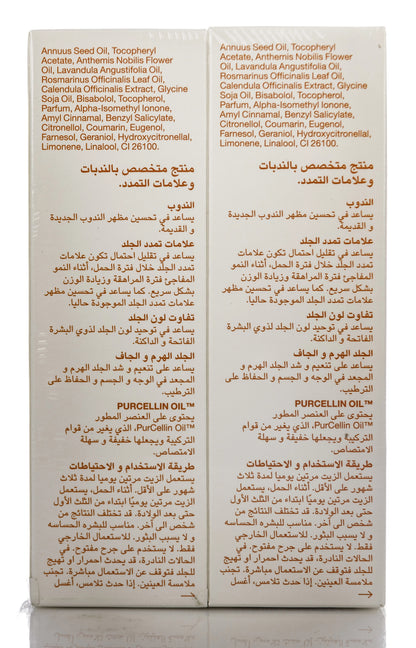 Annuus Seed Oil, Tocopheryl
Acetate, Anthemis Nobilis Flower
Oil, Lavandula Angustifolia Oil,
Rosmarinus Officinalis Leaf Oil,
Calendula Officinalis Extract, Glycine
Soja Oil, Bisabolol, Tocopherol,
Parfum, Alpha-Isomethyl Ionone,
Amyl Cinnamal, Benzyl Salicylate,
Citronellol, Coumarin, Eugenol,
Farnesol, Geraniol, Hydroxycitronellal,
Limonene, Linalool, CI 26100.
منتج متخصص بالندبات
وعلامات التمدد.
الندوب
يساعد في تحسين مظهر الندوب الجديدة
و القديمة.
علامات تمدد الجلد
يساعد في تقليل احتمال تكون علامات
تمدد الجلد خلال فترة الحمل، أثناء النمو
المفاجئ فترة المراهقة وزيادة الوزن
بشكل سريع. كما يساعد في تحسين مظهر
علامات تمدد الجلد الموجودة حاليا.
تفاوت لون الجلد
يساعد في توحيد لون الجلد لذوي البشرة
الفاتحة و الداكنة.
الجلد الهرم و الجاف
يساعد على تنعيم و شد الجلد الهرم و
المجعد في الوجه و الجسم و الحفاظ على
الترطيب.
PURCELLIN OIL™
يحتوى على العنصر المطور
PurCellin Oil™، الذي يغير من قوام
التركيبة ويجعلها خفيفة و سهلة
الامتصاص.
طريقة الاستخدام و الاحتياطات
يستعمل الزيت مرتين يوميا لمدة ثلاث
شهور على الأقل. أثناء الحمل، يستعمل
الزيت مرتين يوميًا ابتداء من الثلث الأول
حتى بعد الولادة. قد تختلف النتائج من
شخص الى آخر. مناسب للبشره الحساسه
و لا يسبب البثور. للاستعمال الخارجي
فقط. لا يستخدم على جرح مفتوح. في
الحالات النادرة، قد يحدث احمرار او تهيج
للجلد فتوقف عن الاستعمال مباشرة. تجنب
ملامسة العينين. إذا حدث تلامس، أغسل
Annuus Seed Oil, Tocopheryl
Acetate, Anthemis Nobilis Flower
Oil, Lavandula Angustifolia Oil,
Rosmarinus Officinalis Leaf Oil,
Calendula Officinalis Extract, Glycine
Soja Oil, Bisabolol, Tocopherol,
Parfum, Alpha-Isomethyl Ionone,
Amyl Cinnamal, Benzyl Salicylate,
Citronellol, Coumarin, Eugenol,
Farnesol, Geraniol, Hydroxycitronellal,
Limonene, Linalool, CI 26100.
منتج متخصص بالندبات
وعلامات التمدد.
الندوب
يساعد في تحسين مظهر الندوب الجديدة
و القديمة.
علامات تمدد الجلد
يساعد في تقليل احتمال تكون علامات
تمدد الجلد خلال فترة الحمل، أثناء النمو
المفاجئ فترة المراهقة وزيادة الوزن
بشكل سريع. كما يساعد في تحسين مظهر
علامات تمدد الجلد الموجودة حاليا.
تفاوت لون الجلد
يساعد في توحيد لون الجلد لذوي البشرة
الفاتحة و الداكنة.
الجلد الهرم و الجاف
يساعد على تنعيم و شد الجلد الهرم و
المجعد في الوجه و الجسم و الحفاظ على
الترطيب.
PURCELLIN OIL™
يحتوى على العنصر المطور
PurCellin Oil™، الذي يغير من قوام
التركيبة ويجعلها خفيفة و سهلة
الامتصاص.
طريقة الاستخدام و الاحتياطات
يستعمل الزيت مرتين يوميا لمدة ثلاث
شهور على الأقل. أثناء الحمل، يستعمل
الزيت مرتين يوميًا ابتداء من الثلث الأول
حتى بعد الولادة. قد تختلف النتائج من
شخص الى آخر. مناسب للبشره الحساسه
و لا يسبب البثور. للاستعمال الخارجي
فقط. لا يستخدم على جرح مفتوح. في
الحالات النادرة، قد يحدث احمرار او تهيج
للجلد فتوقف عن الاستعمال مباشرة. تجنب
ملامسة العينين. إذا حدث تلامس، أغسل